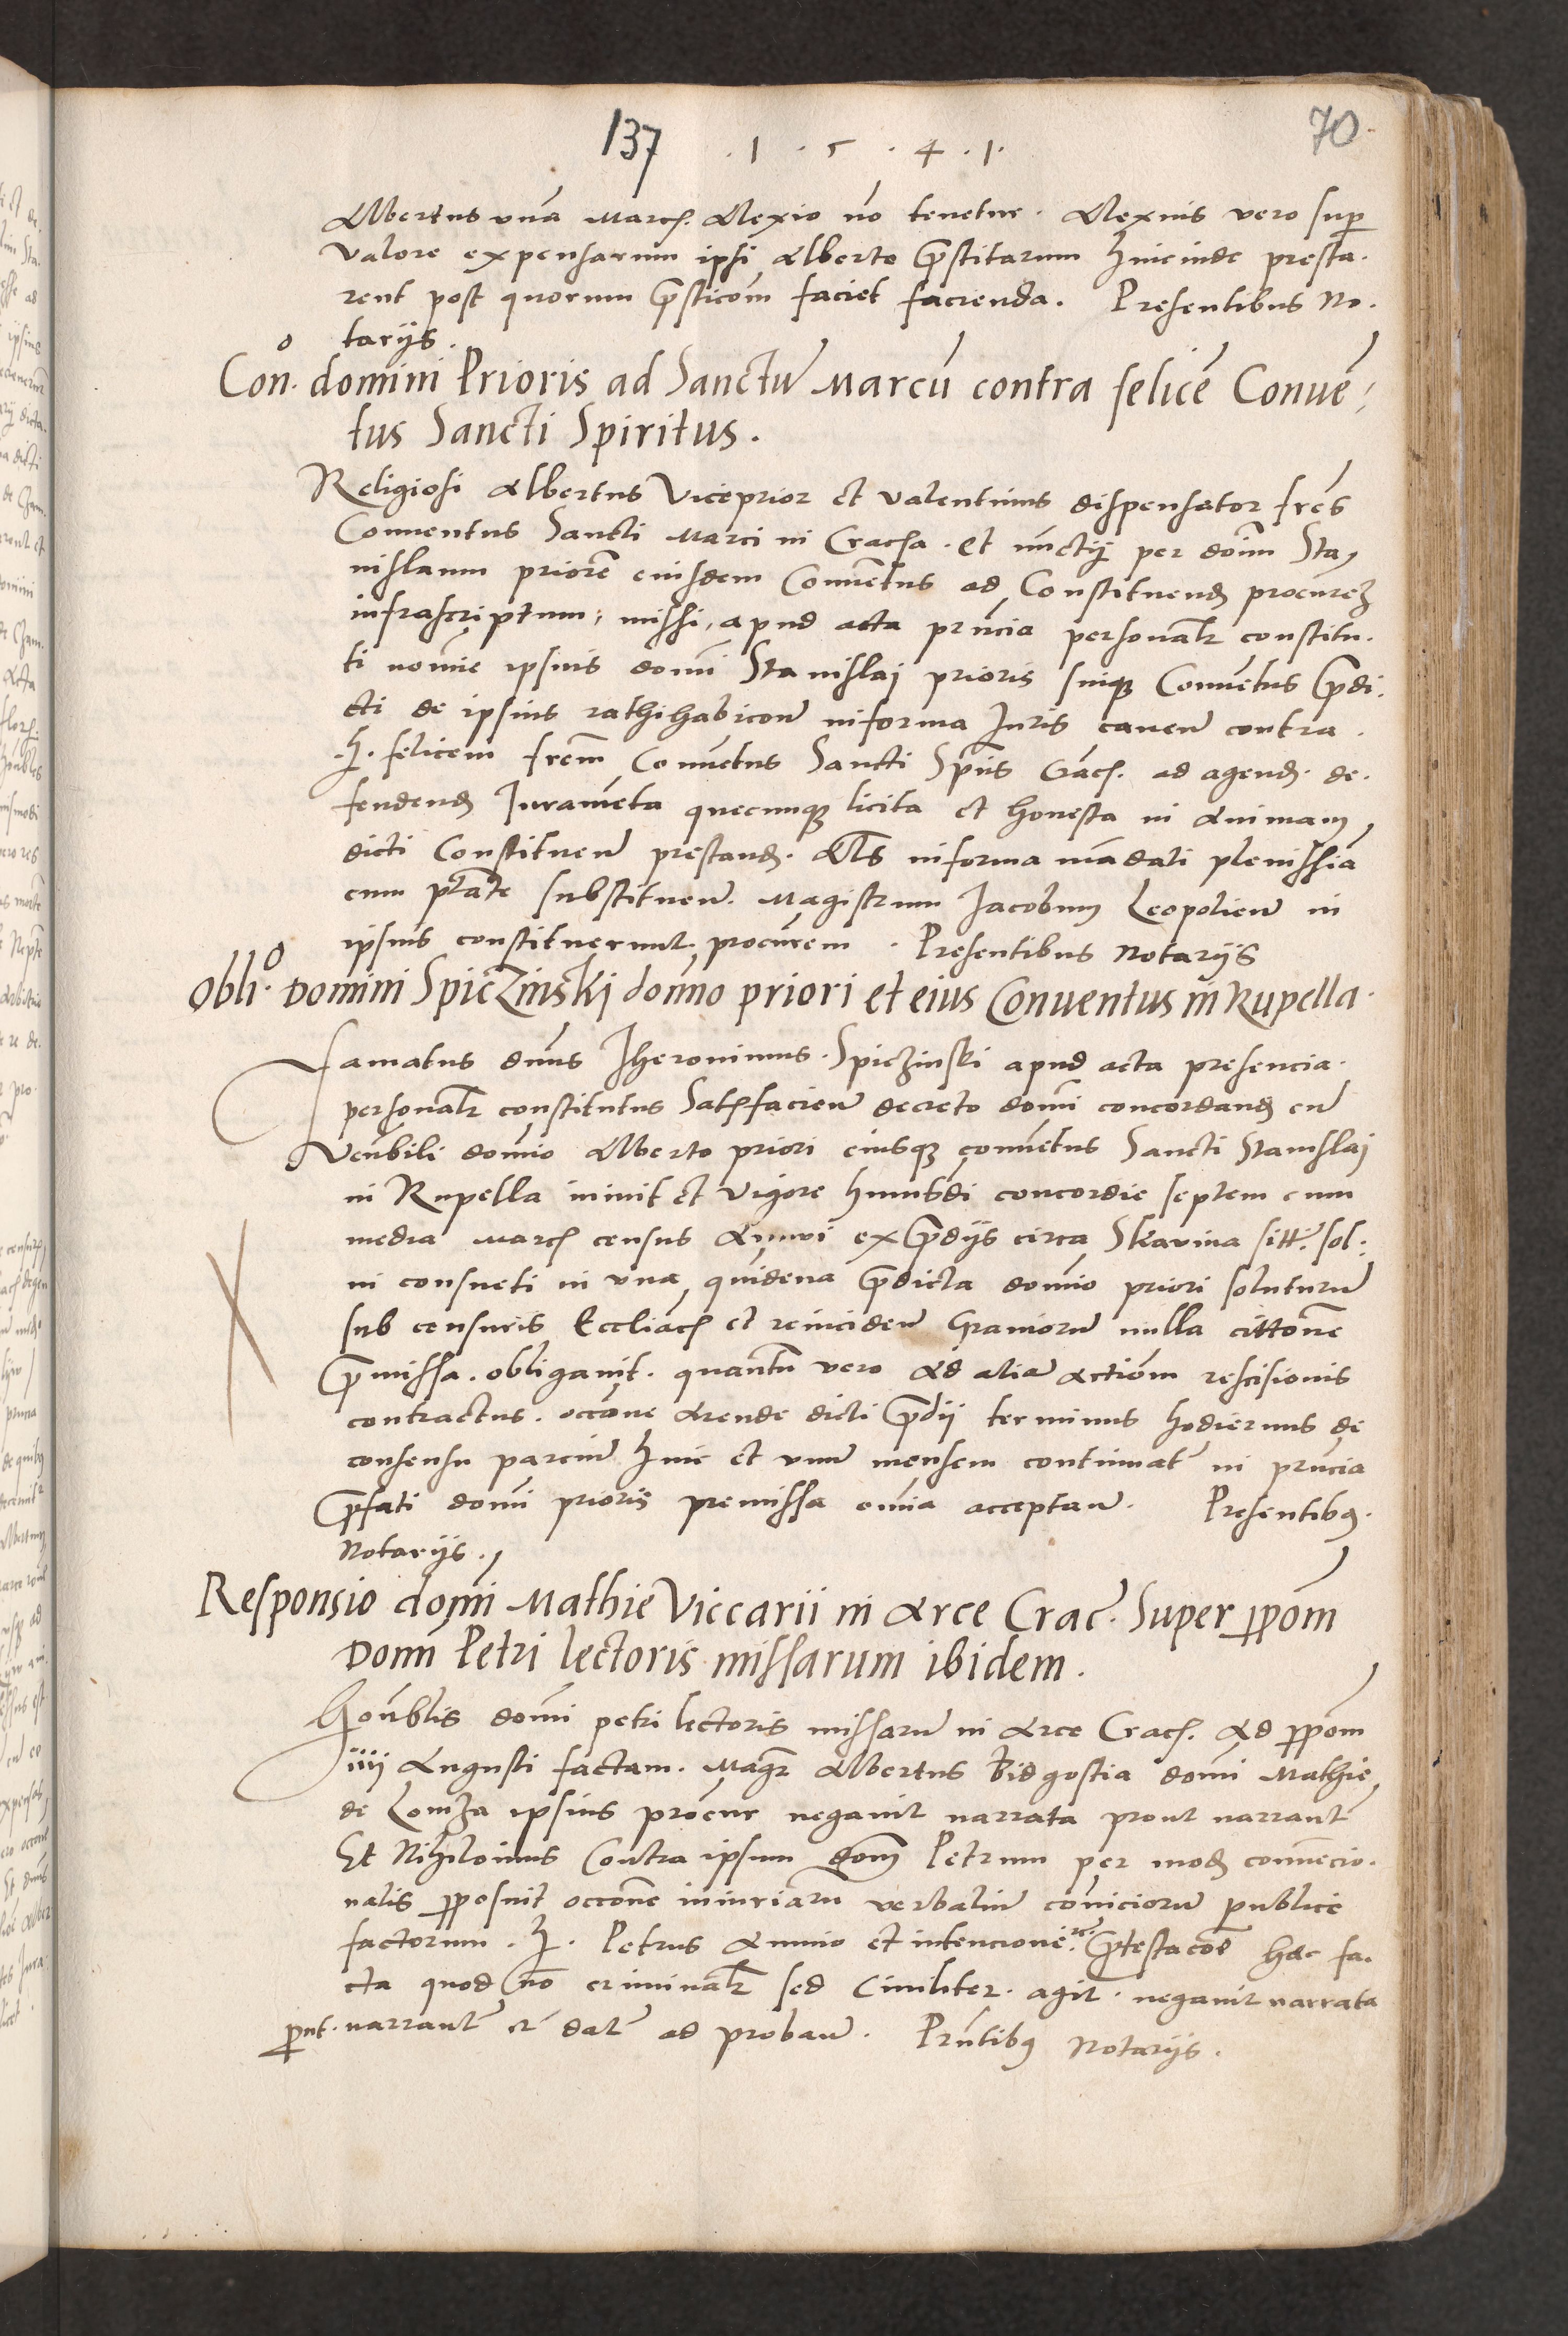 137 . 1 . 5 . 4 . 1 . 70
Albertus unã March. Alexio nõ tenetur. Alexius vero sup
valore expensarum ipsi Alberto p̃stitarum hincinde presta.
rent post quorum p̃sticõm faciet facienda. Presentibus No.
tarijs.
Con.o domini Prioris ad Sanctũ Marcũ contra felicẽ Conuẽ
tus Sancti Spiritus.
Religiosi Albertus Viceprior et valentinus dispensator frẽs
Conuentus Sancti Marci in Cracha. et nunctij per doñm Sta
nislaum priorẽ eiusdem Conuẽtus ad Constituend procurẽ
infrascriptum, missi, apud acta prñcia personalr constitu.
ti noĩe ipsius domĩ Stanislaj prioris suiq Conuẽtus p̃di.
cti de ipsius rathihabicoñ in forma Iuris caueñ contra.
.h. felicem frẽm Conuẽtus Sancti Spũs Crach. ad agend. de.
fendend Iuramẽta quecunq licita et honesta in Animam
dicti Constitueñ prestand. Als in forma mãdati plenissiã
cum ptãte substitueñ. Magistrum Jacobum Leopolieñ in
ipsius constituerunt procũrem. Presentibus Notarijs
Obli.o Domini Spiczinskj domño priori et eius Conuentus in Rupella.
Famatus dnũs Jheronimus. Spiczinski apud acta presencia.
personalr constitutus Satisfacieñ decreto domĩ concordand cũ
Veñbili domĩo Alberto priori eiusq conuẽtus Sancti Stanislaj
in Rupella iniuit et vigore huiusdi concordie septem cum
media March census Annui ex p̃dijs circa Skawina sitt. sol.
ni consueti in una quidena p̃dicta domĩo priori soluturũ
sub censuris Eccliach et reincideñ Grauiorũ nulla cittoñe
p̃missa. obligauit. quantũ vero Ad aliã Actioñm rescisionis
contractus. occoñe Arende dicti p̃dij terminus hodiernus de
consensu parciũ hinc et unũ mensem continuatr̃ in prñcia
p̃fati domĩ prioris premissa omĩa acceptañ. Presentibq.
Notarijs.
Responsio domĩ Mathie Viccarii in Arce Crac. Super ppoñm
Domĩ Petri lectoris missarum ibidem.
Hoñblis domĩ petri lectoris missarũ in Arce Crach. Ad ppoñm
iiij Augusti factam. Magr̃ Albertus Bidgostia domĩ Mathie
de Lomza ipsius procur negauit narrata prout narrantr̃
Et Nihiloĩus Contra ipsum doñm Petrum per mod conuẽcio.
nalis pposuit occoñe iniuriarũ verbaliũ couiciorũ publice
factorum. h. Petrus Animo et intencione rc. p̃testacoẽ hac fa.
cta quod nõ criminalr sed Ciuiliter. agit. negauit narrata
pnt. narrantr̃ et datr̃ ad probañ. Prñtibq Notarijs.